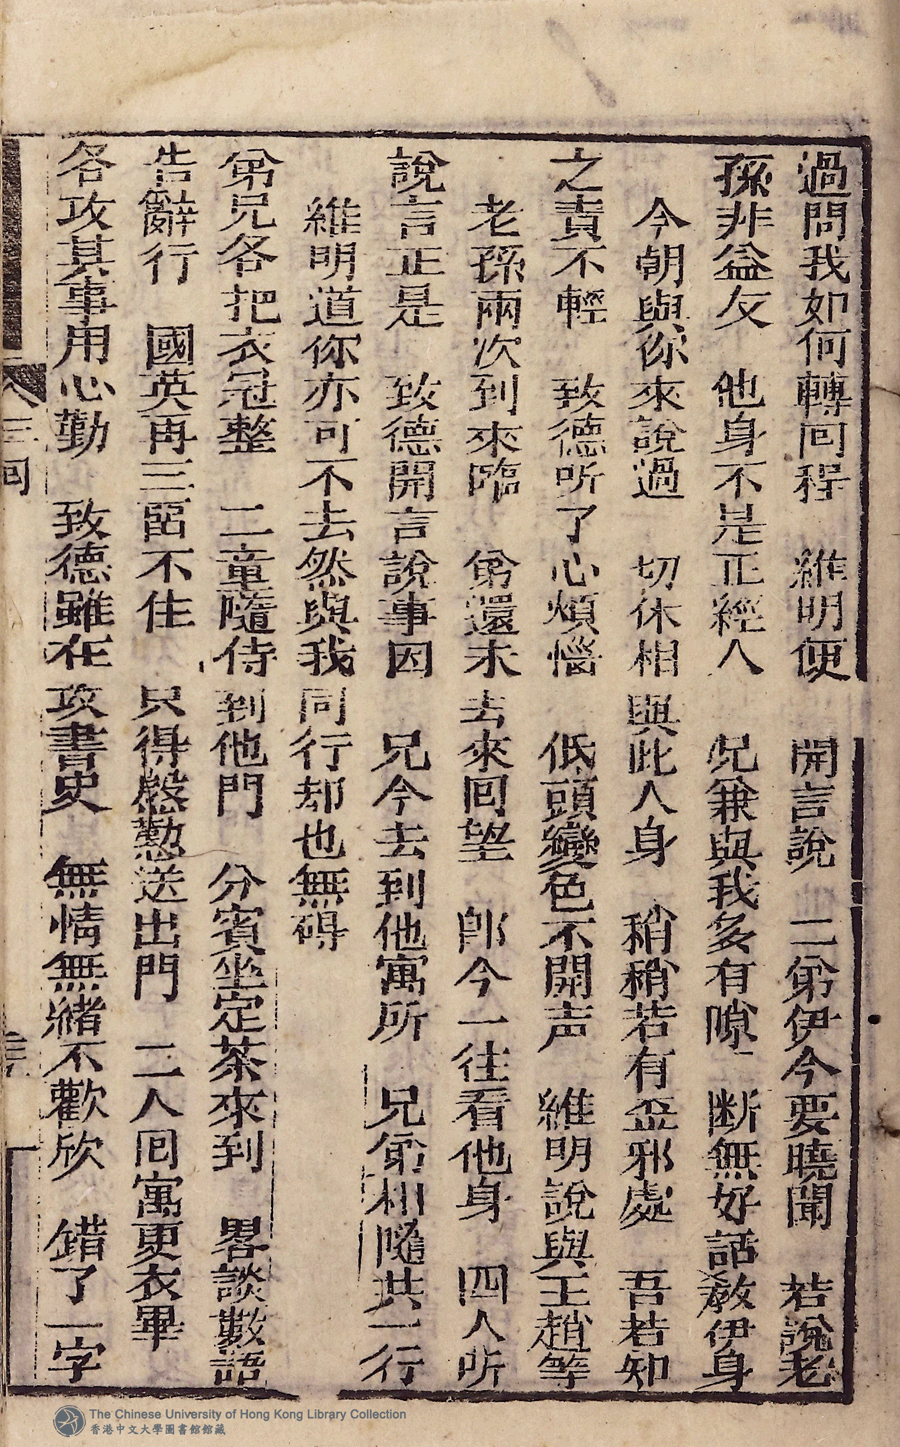 過問我如何轉囘程　維明便開言說　二弟伊今要曉聞　若說老
孫非益友　他身不是正經人　兄兼與我多有隙　断無好話教伊身
今朝與你來說過　切休相與此人身　稍稍若有歪邪處　吾若知
之責不輕　致德听了心煩惱　低頭變色不開声　維明說與王趙等
老孫兩次到來臨　弟還未去來囘望　卽今一往看他身　四人听
說言正是　致德開言說事因　兄今去到他寓所　兄弟相隨共一行
維明道你亦可不去然與我同行却也無碍
弟兄各把衣冠整　二童隨侍到他門　分賓坐定茶來到　畧談數語
告辭行　國英再三畱不住　只得慇懃送出門　二人囘寓更衣畢
各攻其事用心勤　致德雖在攻書史　無情無緒不歡欣　錯了一字
三囘
The Chinese University of Hong Kong Library Collection
香港中文大學圖書館館藏